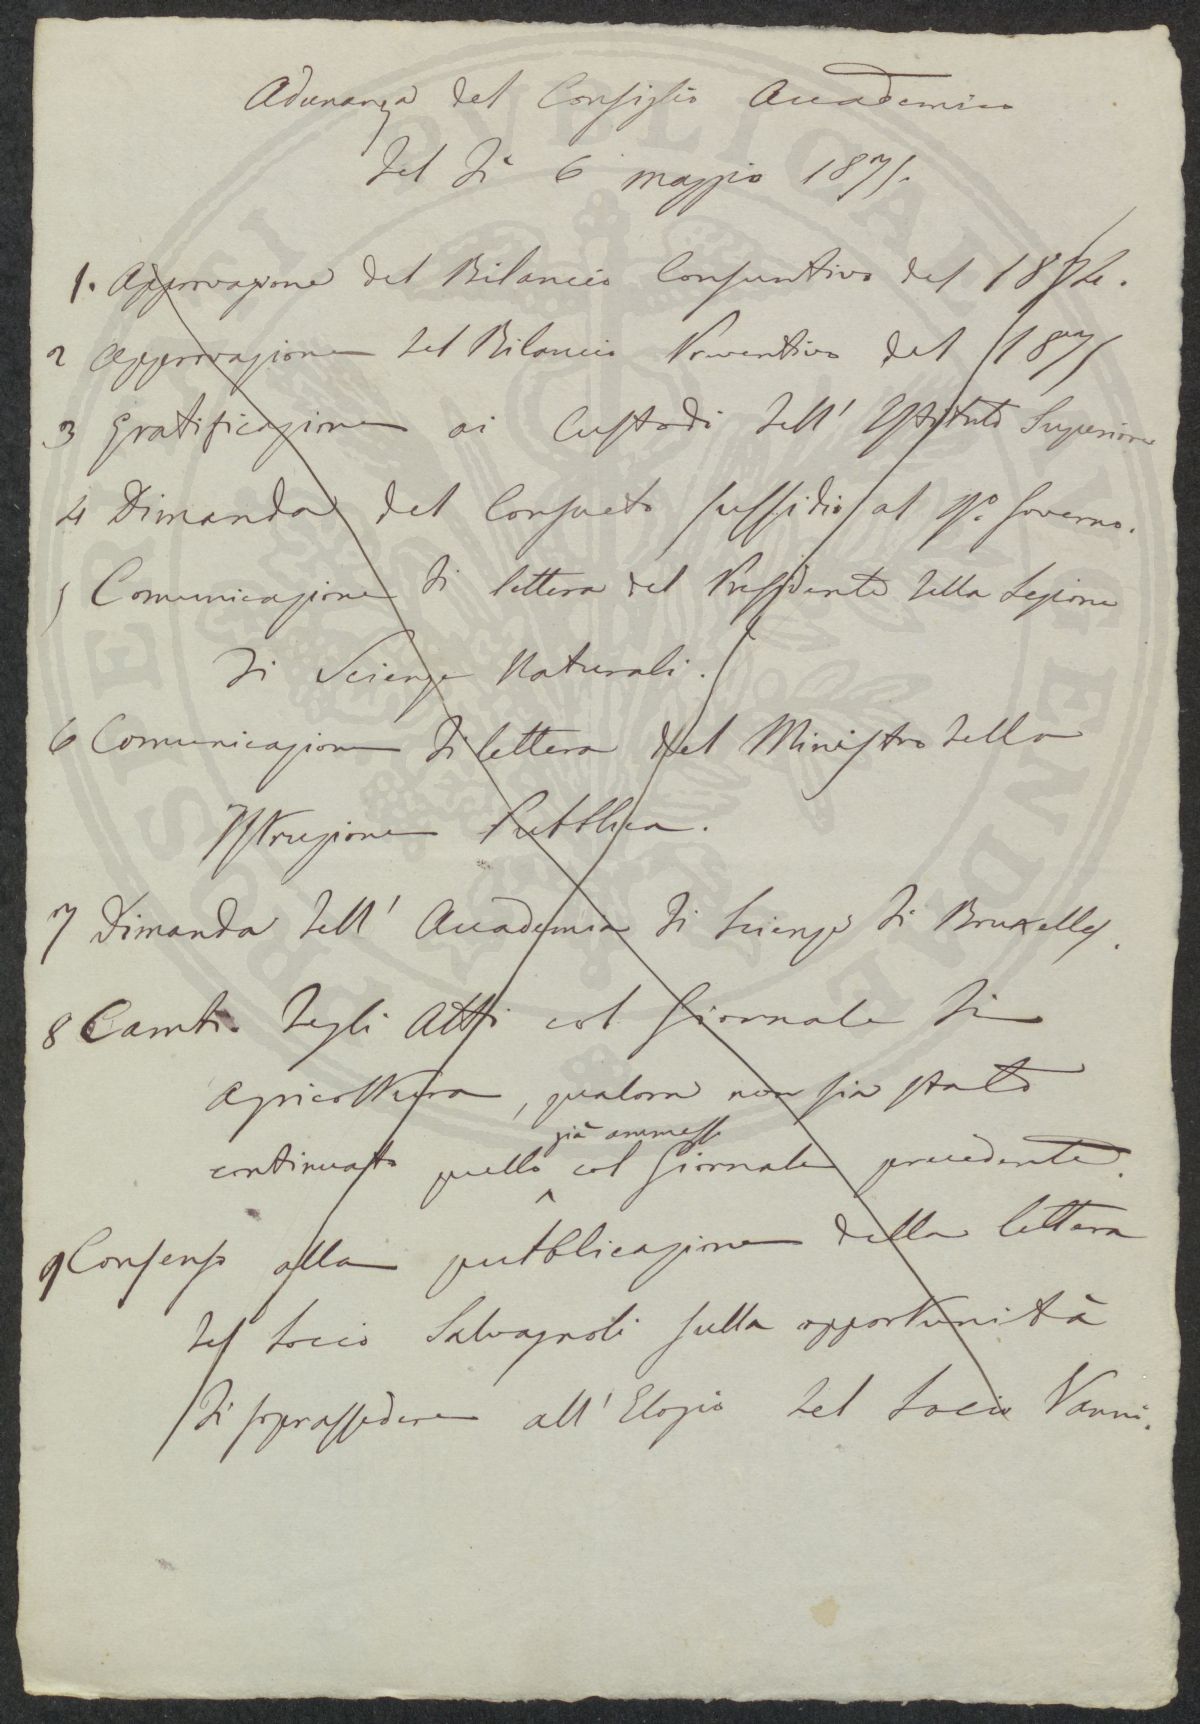 Adunanza del Consiglio Accademico
del dì 6 maggio 1875.
1. Approvazione del Bilancio Consuntivo del 1874.
2 Approvazione del Bilancio Preventivo del 1875
3 Gratificazione ai Custodi dell' Istituto Superiore
4 Dimanda del Consueto sussidio al Rº. Governo.
5 Comunicazione di lettera del Presidente della Sezione
di Scienze Naturali.
6 Comunicazione di lettera del Ministro della
Istruzione Pubblica.
7 Dimanda dell' Accademia di Scienze di Bruxelles.
8 Cambio degli Atti col Giornale di
Agricoltura, qualora non sia stato
già ammesso
continuato quello col Giornale precedente.
9 Consenso alla pubblicazione della lettera
del Socio Salvagnoli sulla opportunità
di soprassedere all' Elogio del Socio Vanni.
PUBLICAE